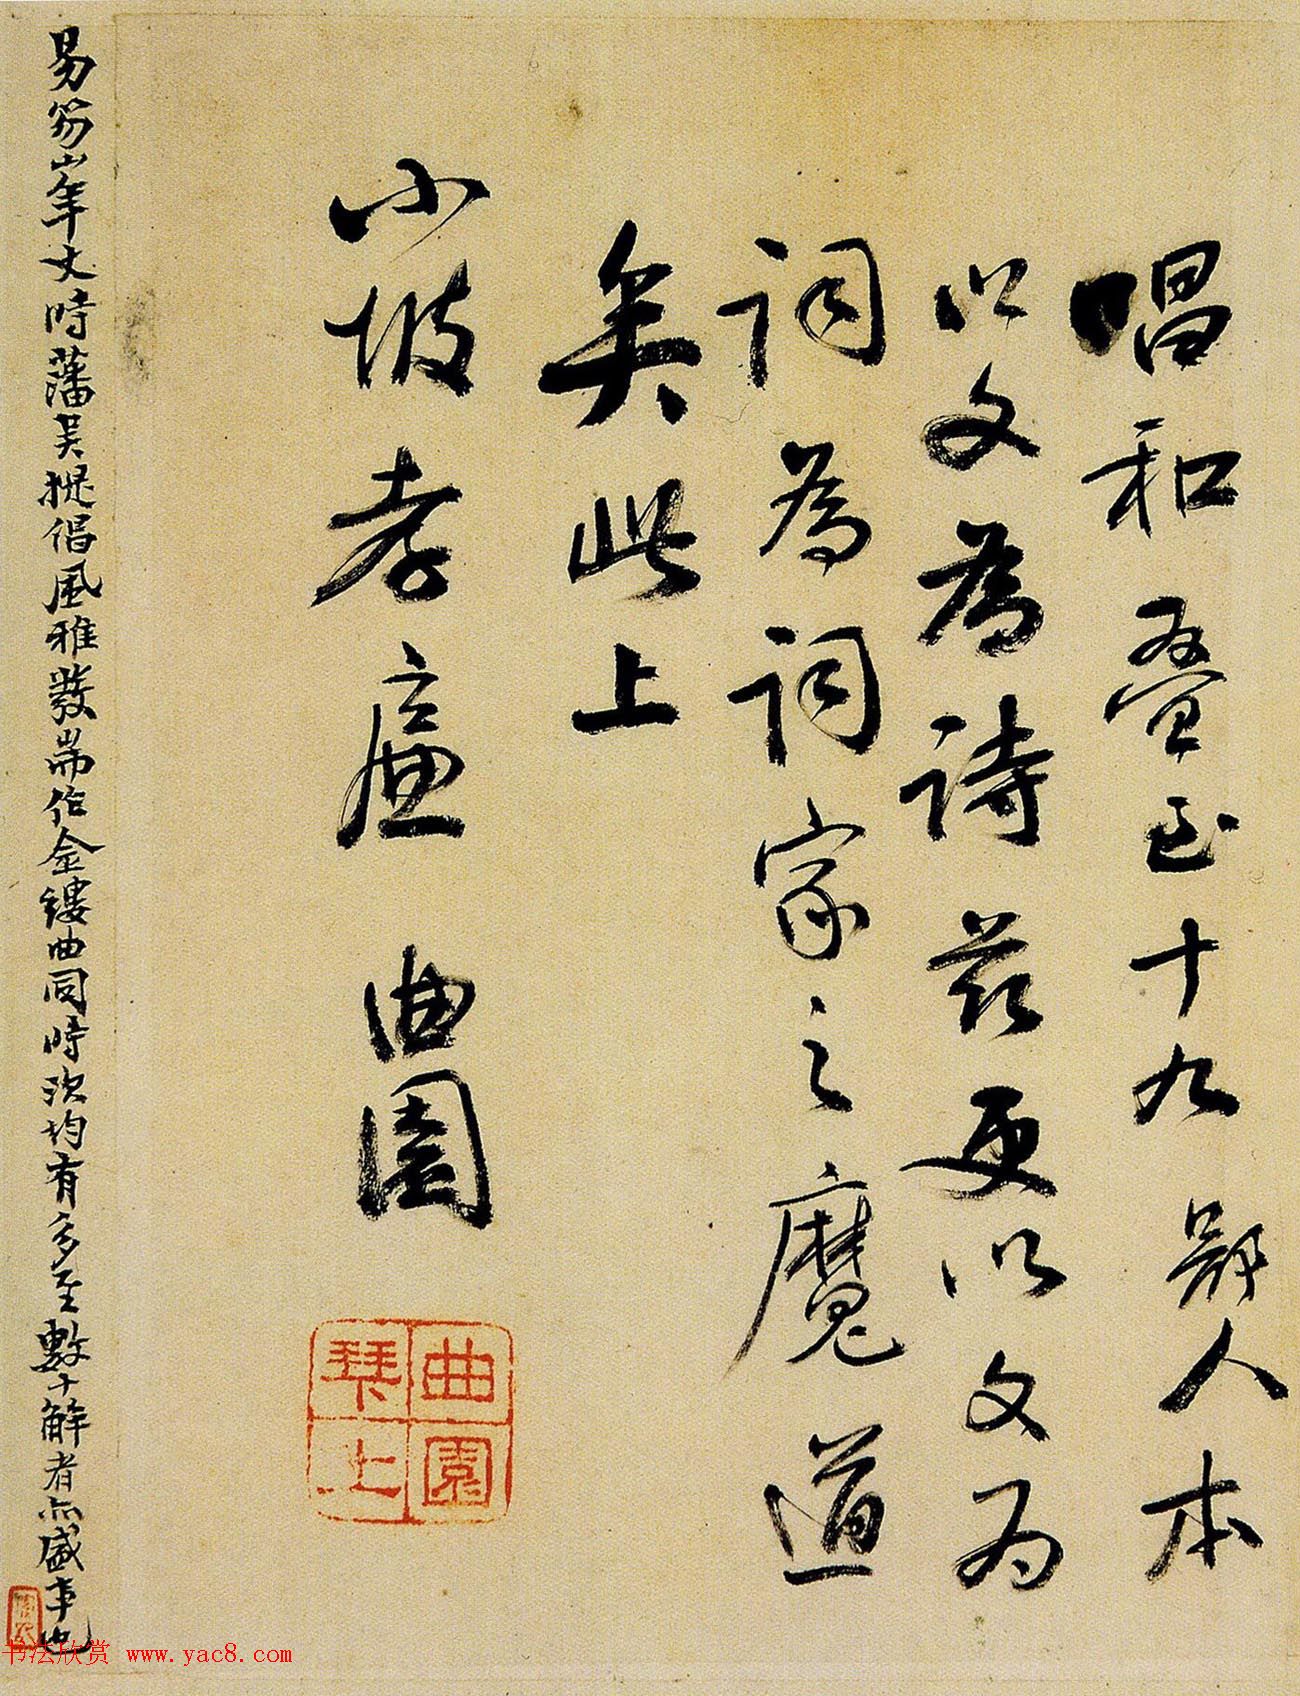 唱和疊至十九鄙人本
以文為詩茲更以文為
詞為詞家之魔道
矣此上
小坡孝廉 曲園
曲園
琴上
易笏山年丈時藩吳提倡風雅發耑作金縷曲同時次均有多至數十解者亦盛事也
书法欣赏 www.yac8.com